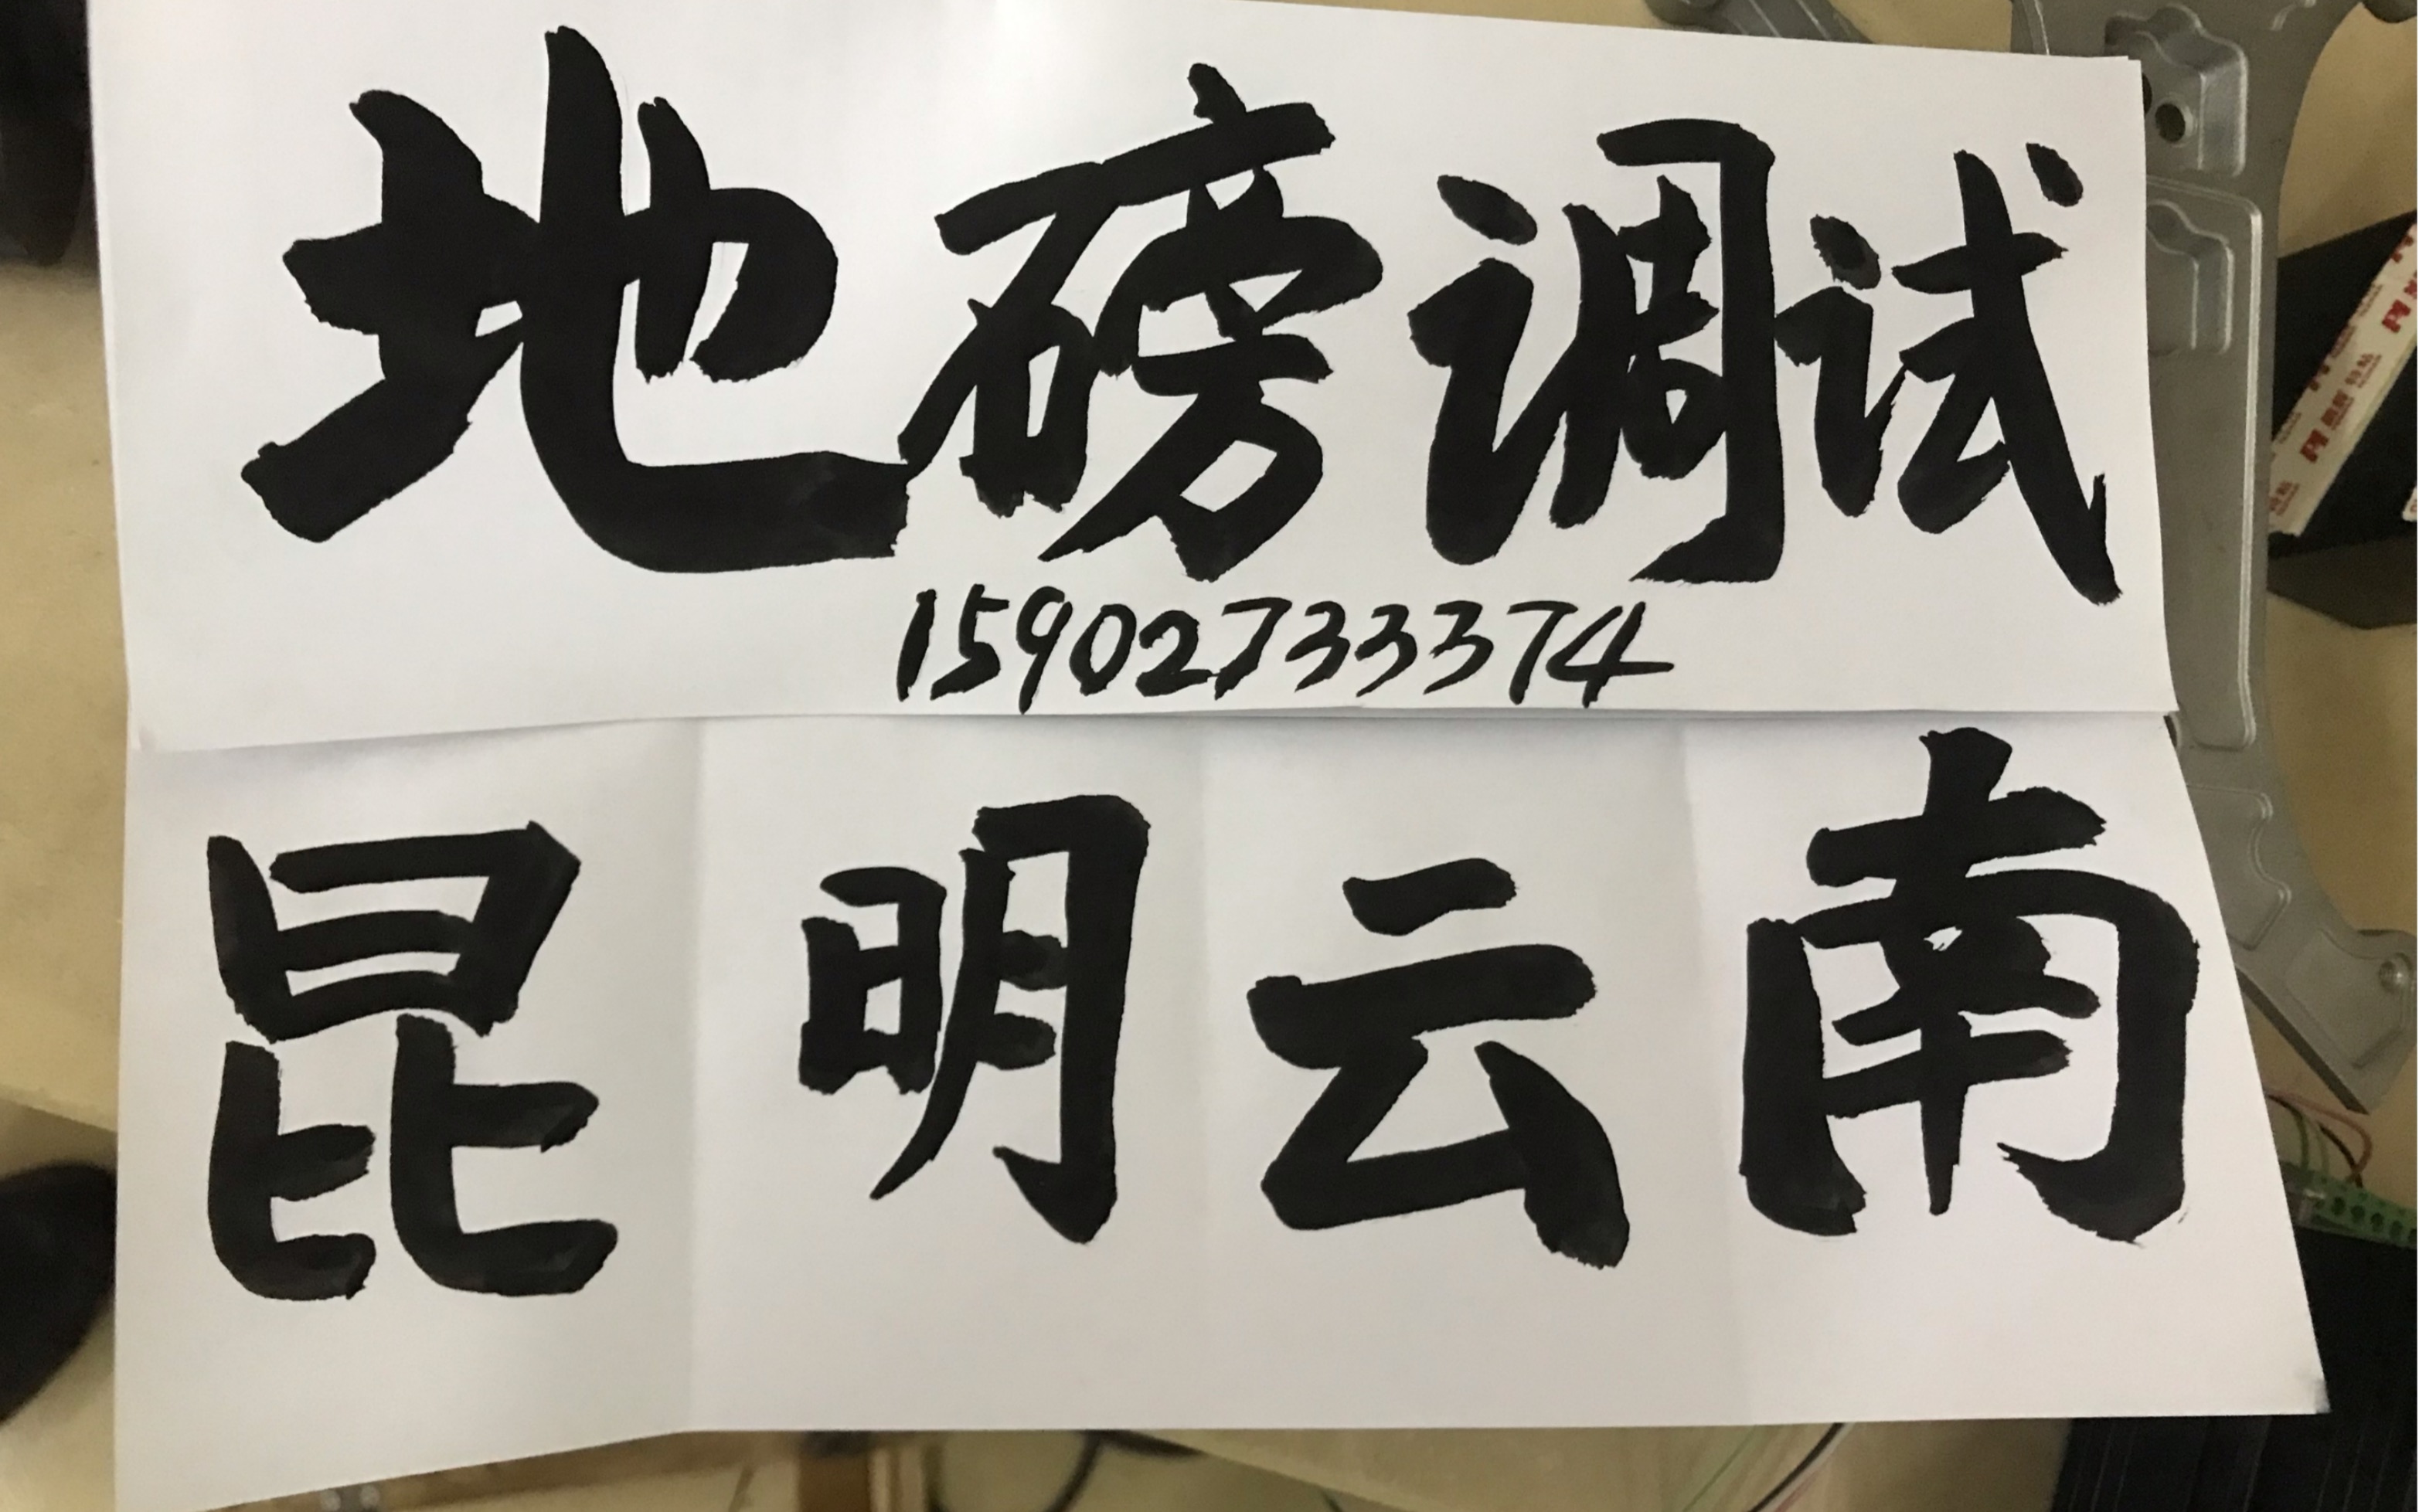 地磅调试
15902733374
昆明云南